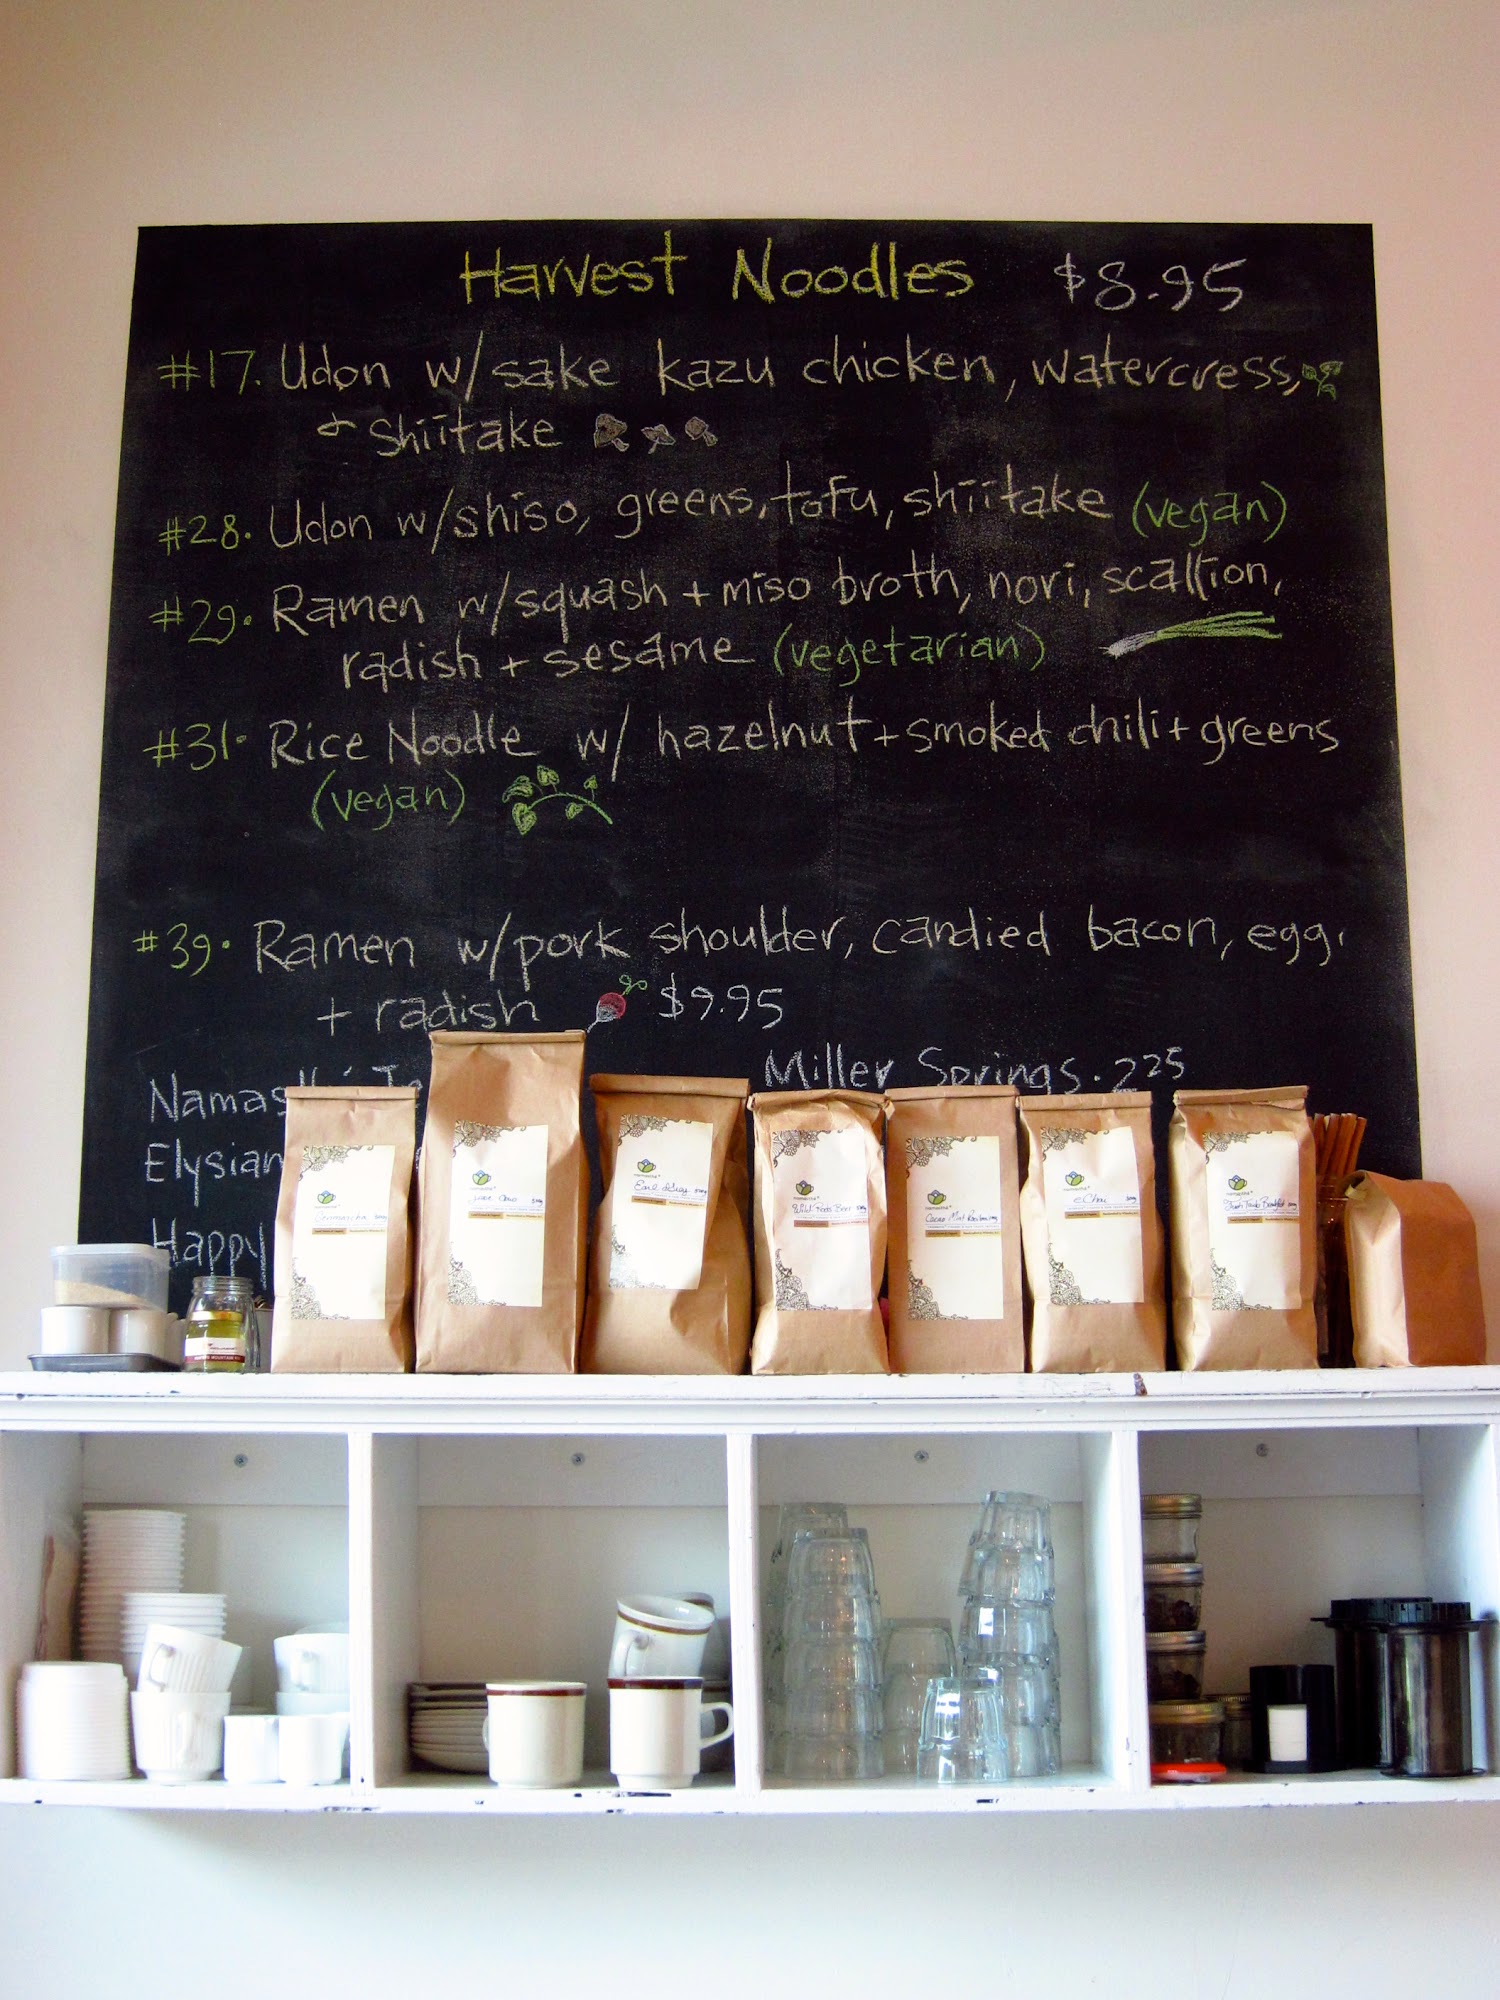 Harvest Noodles $8.95
#17. Udon w/sake kazu chicken, watercress,
& Shiitake
#28. Udon w/shiso, greens, tofu, shiitake (vegan)
#29. Ramen w/squash + miso broth, nori, scallion,
radish + sesame (vegetarian)
#31. Rice Noodle w/ hazelnut + smoked chili + greens
(vegan)
#39. Ramen w/pork shoulder, candied bacon, egg,
+ radish $9.95
Miller Springs. 2.25
Elysian
Happy
Earl Grey